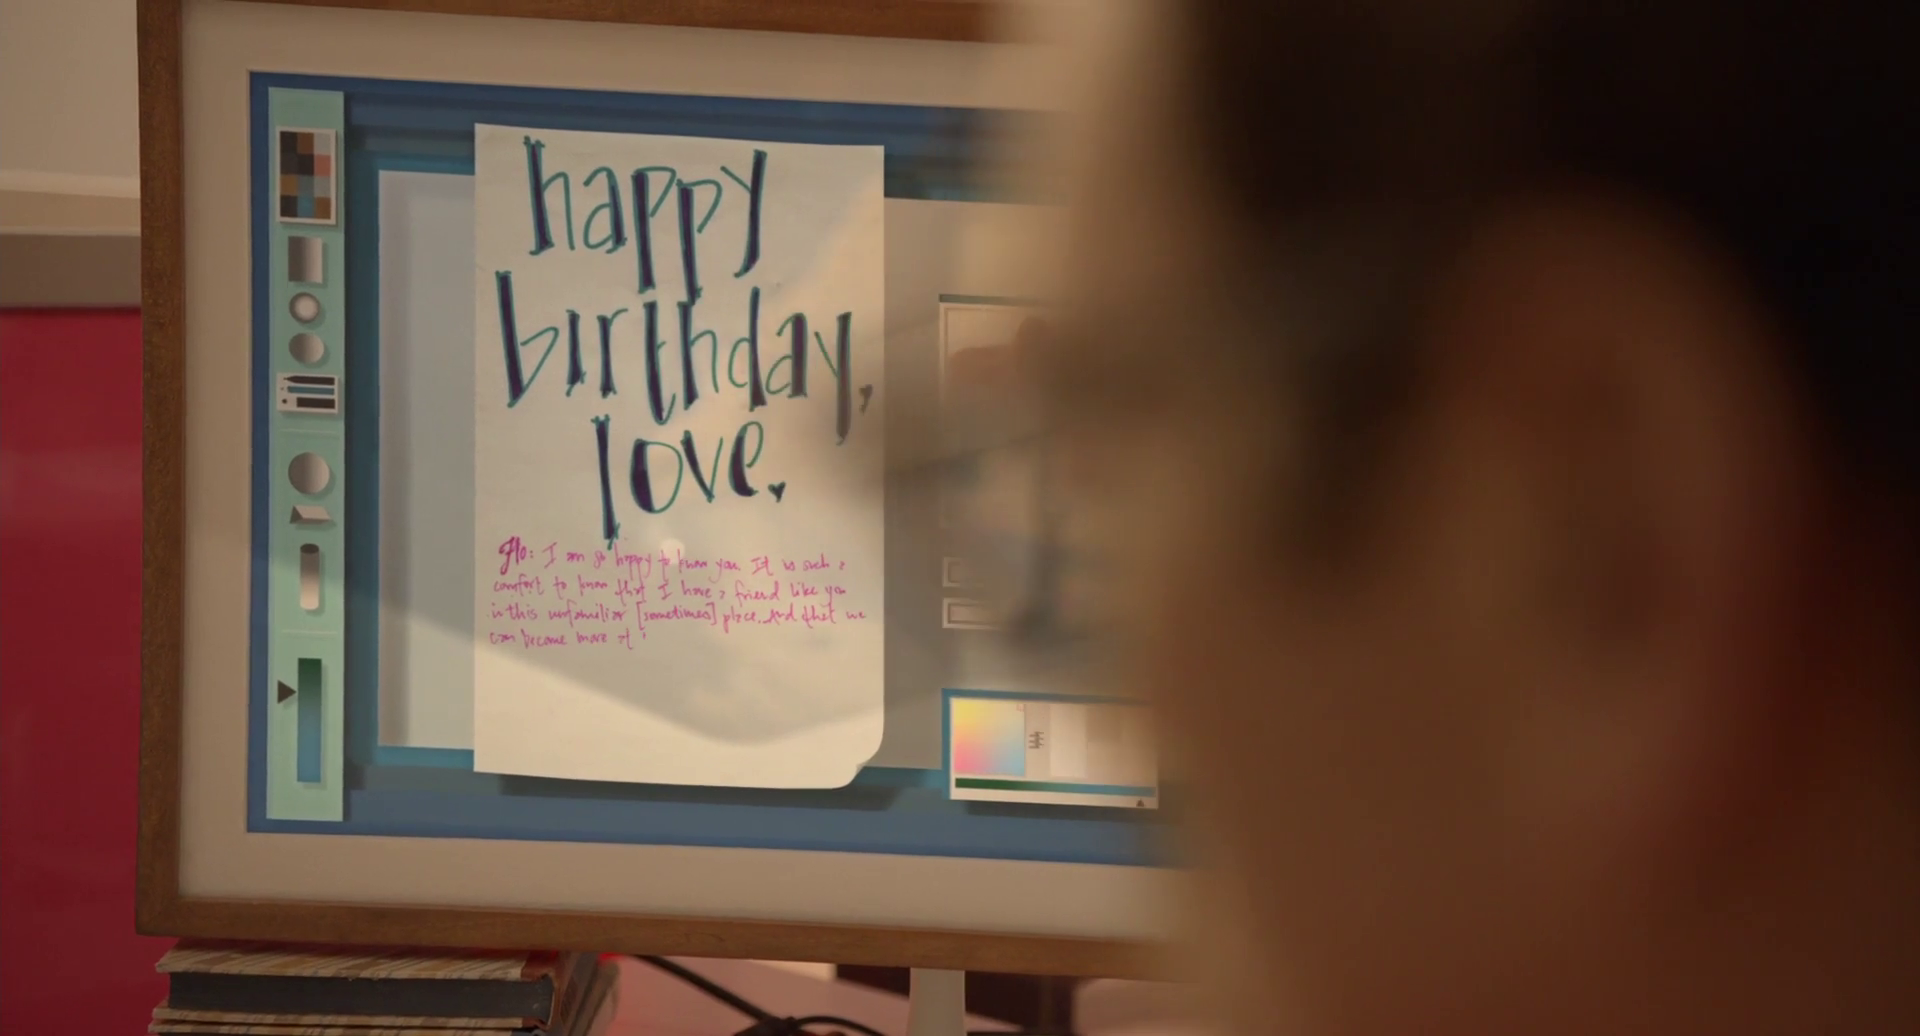 happy
birthday,
love.
Flo: I am so happy to know you. It is such a
comfort to know that I have a friend like you
in this unfamiliar [sometimes] place. And that we
can become more at